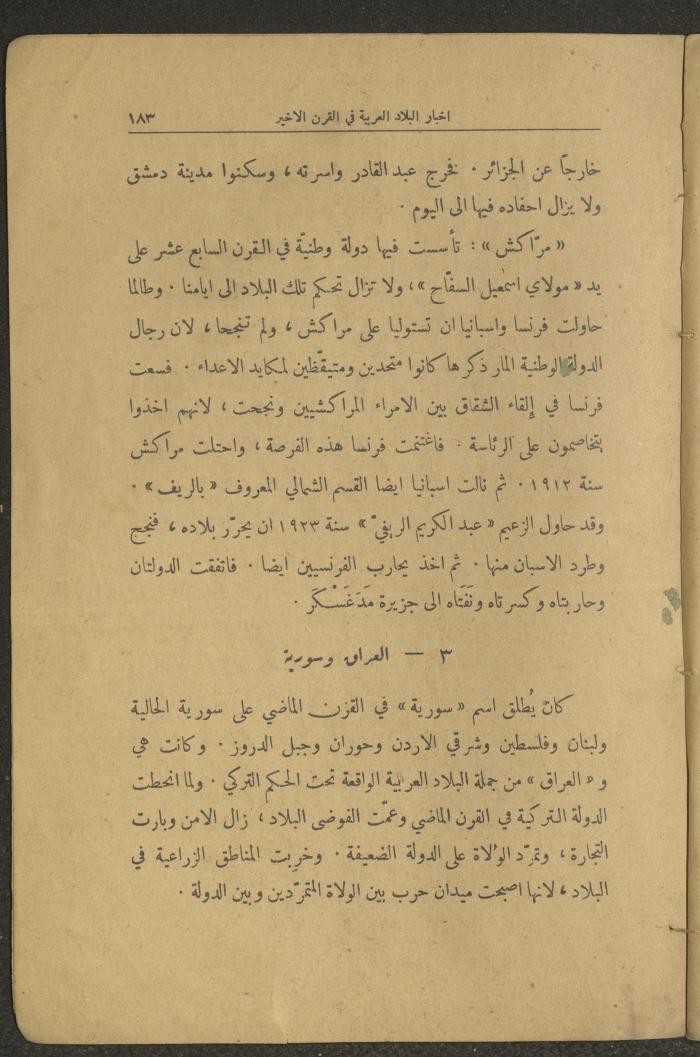 اخبار البلاد العربية في القرن الاخير ١٨٣
خارجاً عن الجزائر . فخرج عبد القادر واسرته ، وسكنوا مدينة دمشق
ولا يزال احفاده فيها الى اليوم .
« مرّاكش » : تأسست فيها دولة وطنيّة في القرن السابع عشر على
يد « مولاي اسمعيل السفّاح » ، ولا تزال تحكم تلك البلاد الى ايامنا . وطالما
حاولت فرنسا واسبانيا ان تستوليا على مراكش ، ولم تنجحا ، لان رجال
الدولة الوطنية المار ذكرها كانوا متحدين ومتيقّظين لمكايد الاعداء . فسعت
فرنسا في إلقاء الشقاق بين الامراء المراكشيين ونجحت ، لانهم اخذوا
يتخاصمون على الرئاسة . فاغتنمت فرنسا هذه الفرصة ، واحتلت مراكش
سنة ١٩١٢ . ثم نالت اسبانيا ايضا القسم الشمالي المعروف « بالريف » .
وقد حاول الزعيم « عبد الكريم الريفيّ » سنة ١٩٢٣ ان يحرّر بلاده ، فنجح
وطرد الاسبان منها . ثم اخذ يحارب الفرنسيين ايضا . فاتفقت الدولتان
وحاربتاه وكسرتاه ونَفَتَاه الى جزيرة مَدَغَسْكَر .
٣ — العراق وسورية
كان يُطلق اسم « سورية » في القرن الماضي على سورية الحالية
ولبنان وفلسطين وشرقي الاردن وحوران وجبل الدروز . وكانت هي
و « العراق » من جملة البلاد العربية الواقعة تحت الحكم التركي . ولما انحطت
الدولة التركية في القرن الماضي وعمّت الفوضى البلاد ، زال الامن وبارت
التجارة ، وتمرّد الوُلاة على الدولة الضعيفة . وخربت المناطق الزراعية في
البلاد ، لانها اصبحت ميدان حرب بين الولاة المتمرّدين وبين الدولة .